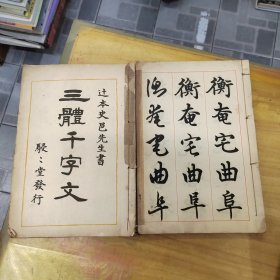 衡奄宅曲阜
衡奄宅曲阜
衡奄宅曲阜
辻本史邑先生書
三體千字文
駸〻堂發行